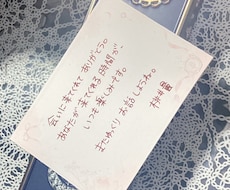 会いに来てくれて ありがとう。
あなたが来てくれる時間が、
いつも楽しみです。
またゆっくり お話ししようね。